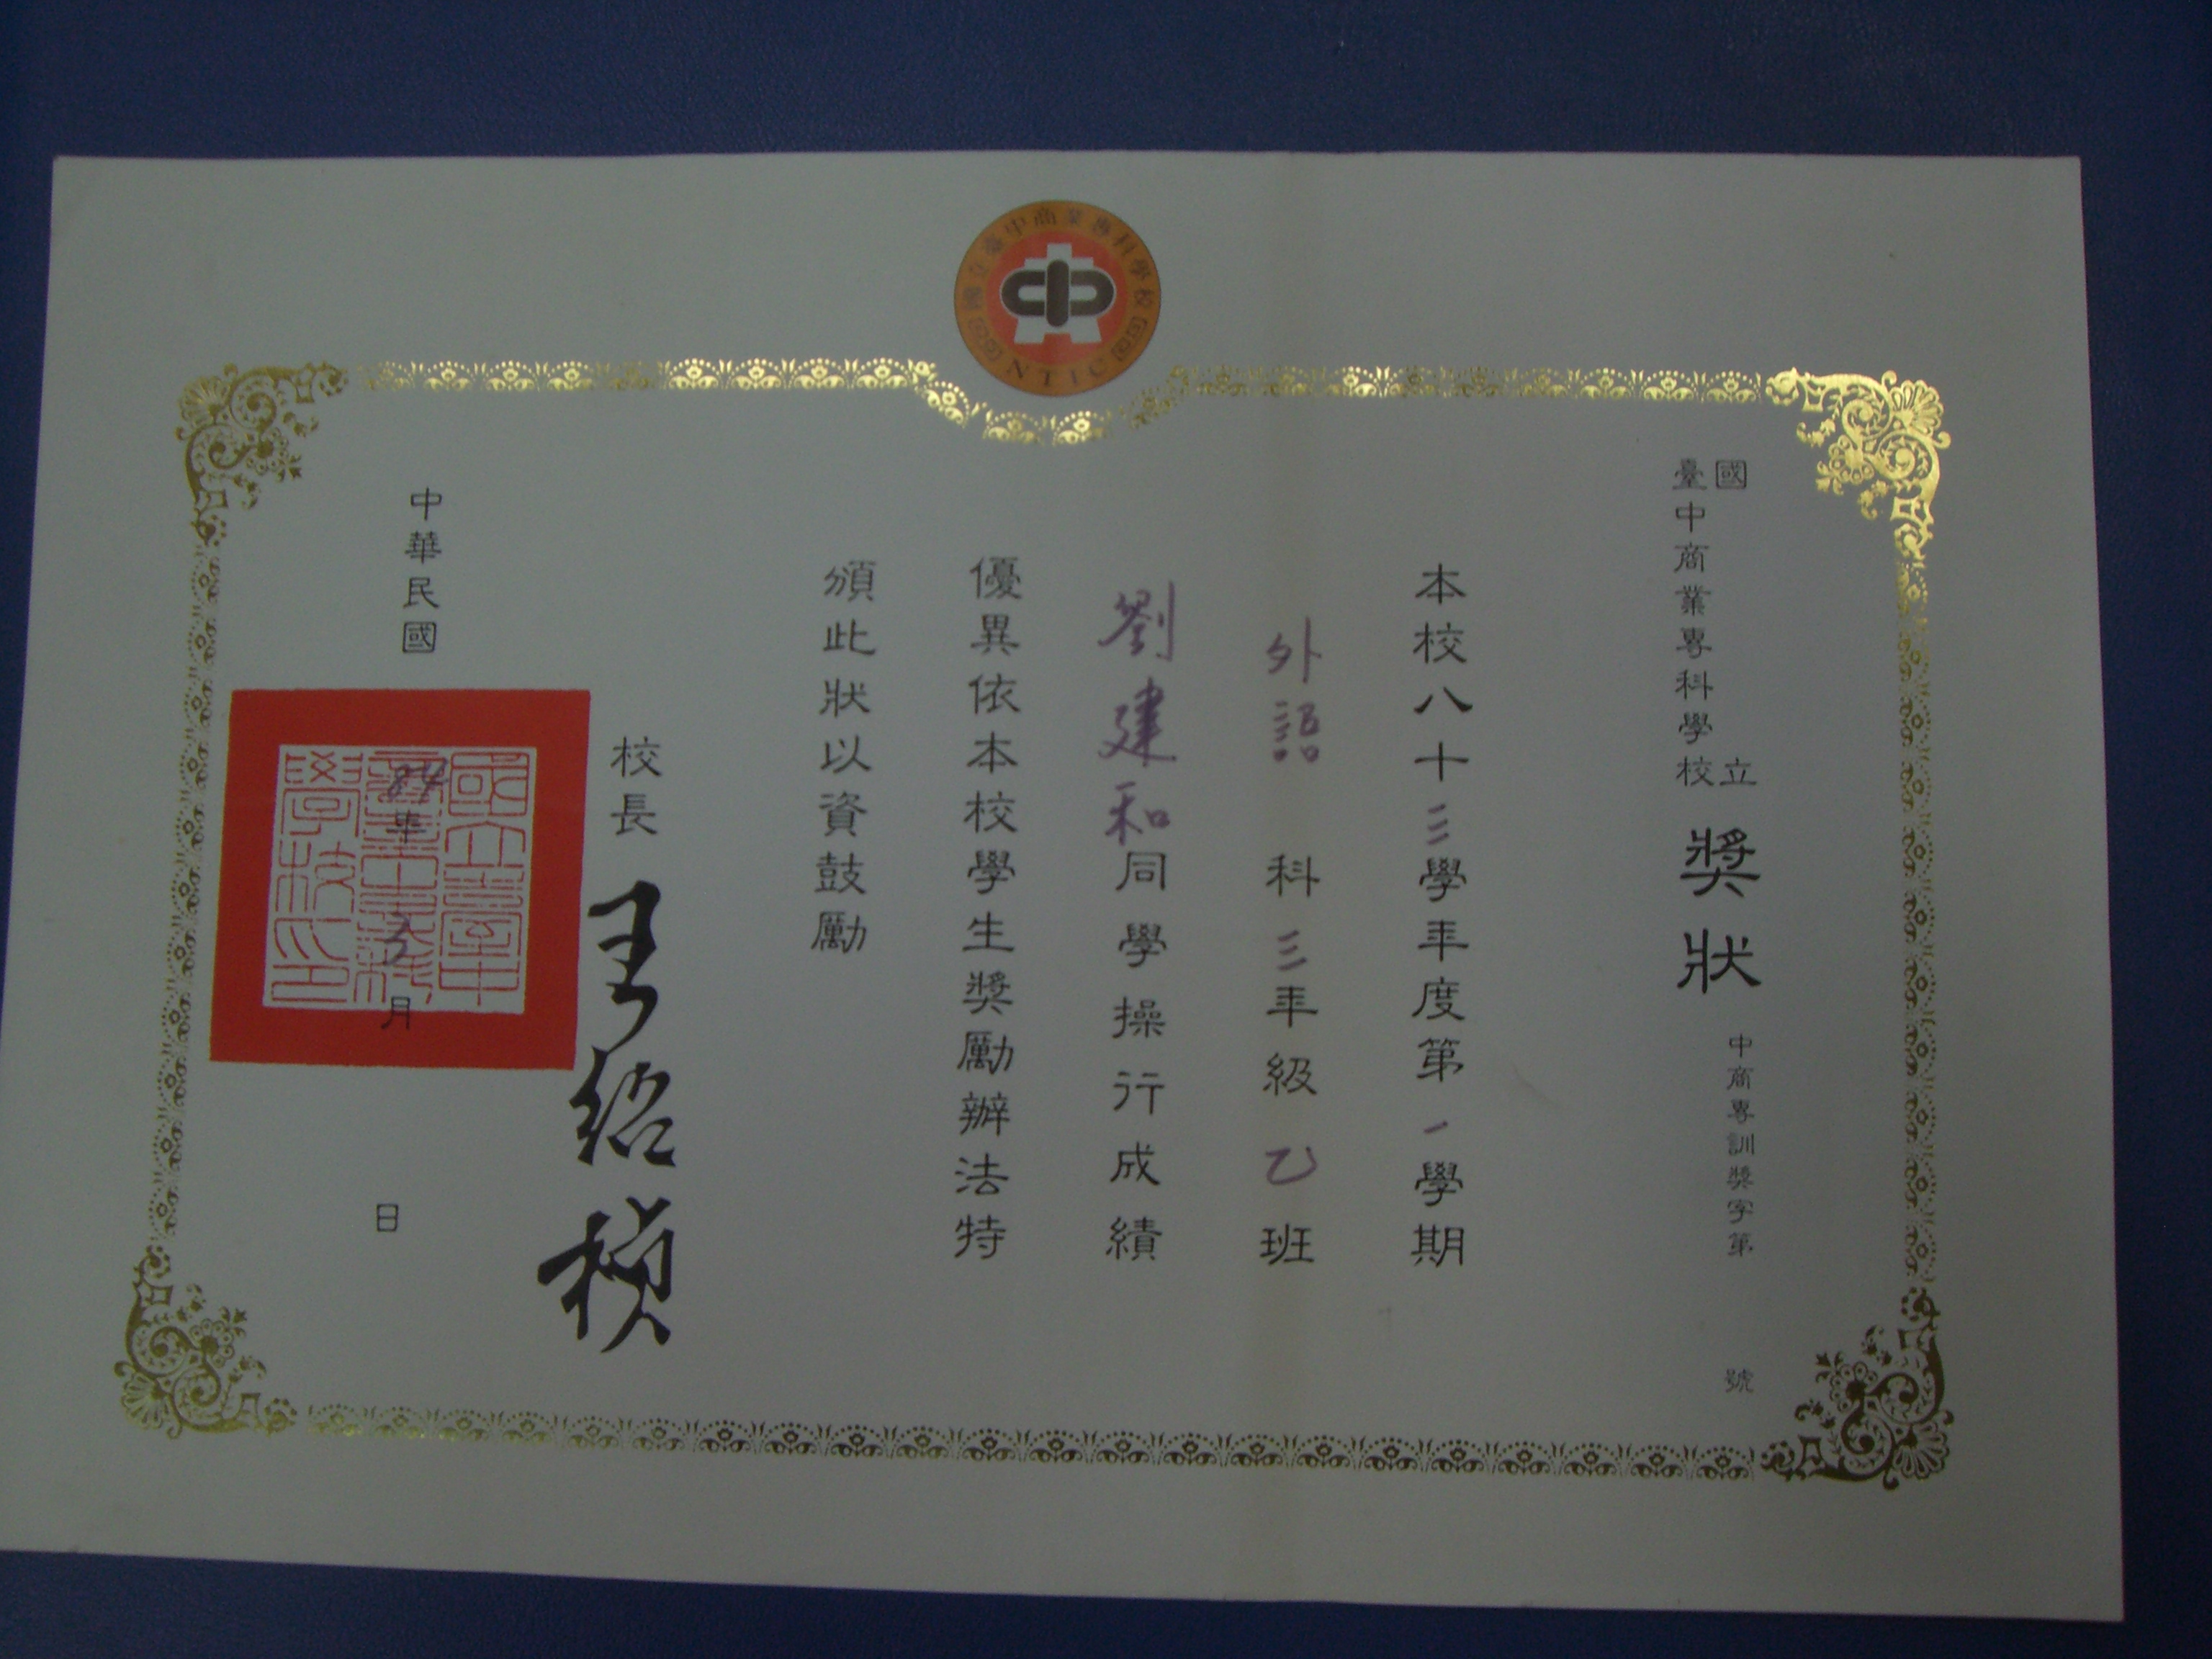 國立臺中商業專科學校
NTIC
國立
臺中商業專科學校
獎狀
中商專訓獎字第 號
本校八十三學年度第一學期
外語科三年級乙班
劉建和同學操行成績
優異依本校學生獎勵辦法特
頒此狀以資鼓勵
校長 王紹楨
中華民國 84 年 3 月 日